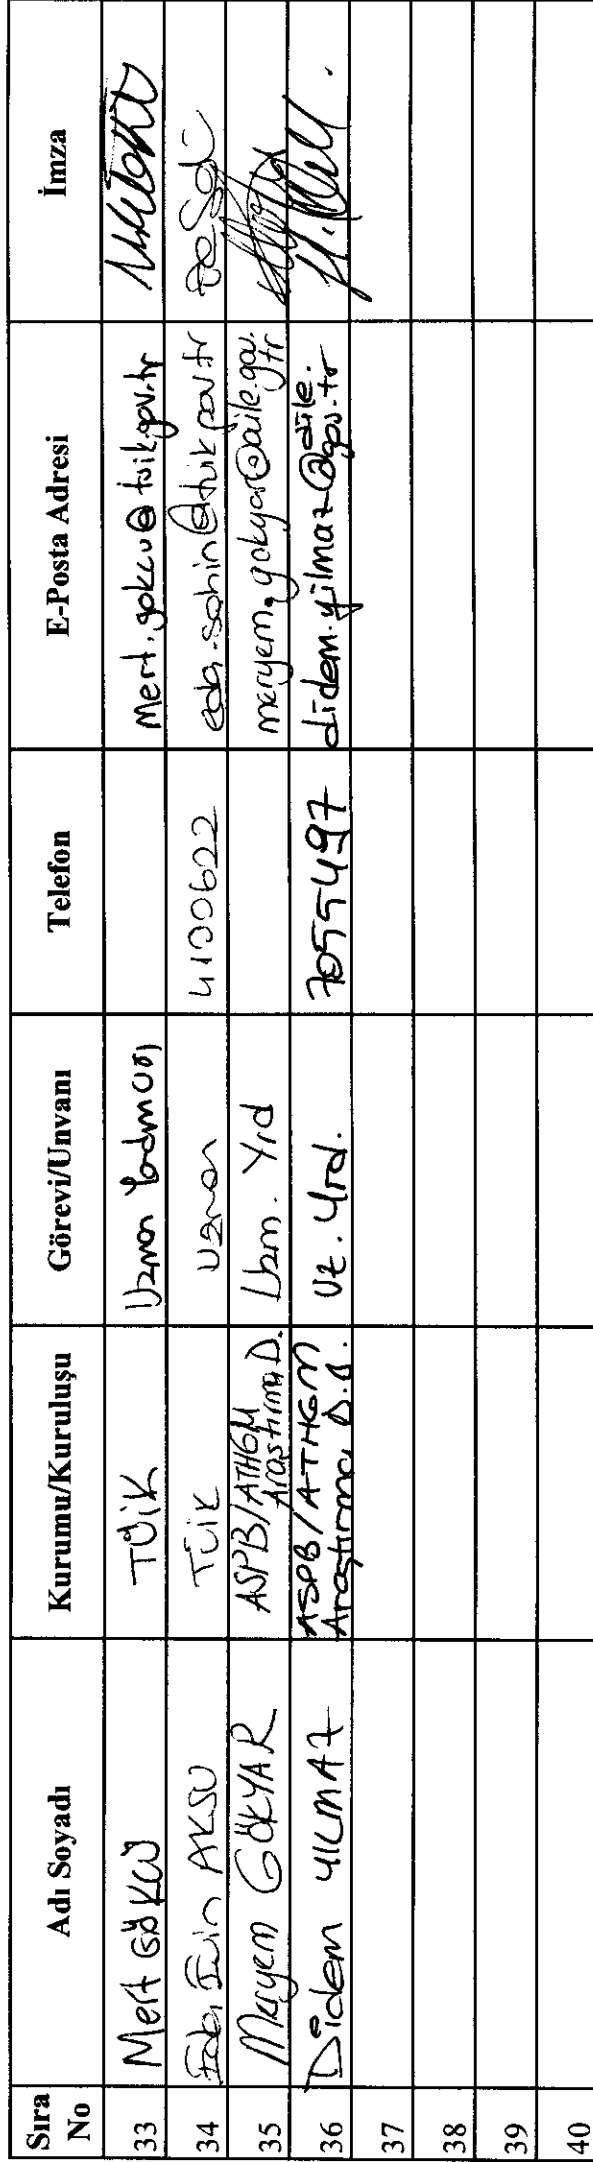 Sıra No Adı Soyadı Kurumu/Kuruluşu Görevi/Unvanı Telefon E-Posta Adresi İmza
33 Mert GÖKCÜ TÜİK Uzman Yardımcısı mert.gokcu@tuik.gov.tr
34 AKSU TÜİK Uzman 4100622 eda.sahin@tuik.gov.tr
35 Meryem GÖKYAR ASPB/ATHGM Araştırma D. Uzm. Yrd meryem.gokyar@aile.gov.tr
36 Didem YILMAZ ASPB/ATHGM Araştırma D.B. Uz. Yrd. 7055497 didem.yilmaz@aile.gov.tr
37
38
39
40